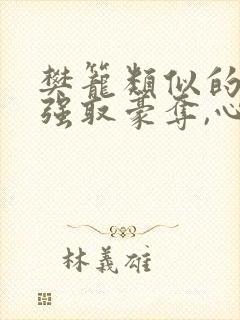 樊籠類似的
强取豪奪,心
林義雄